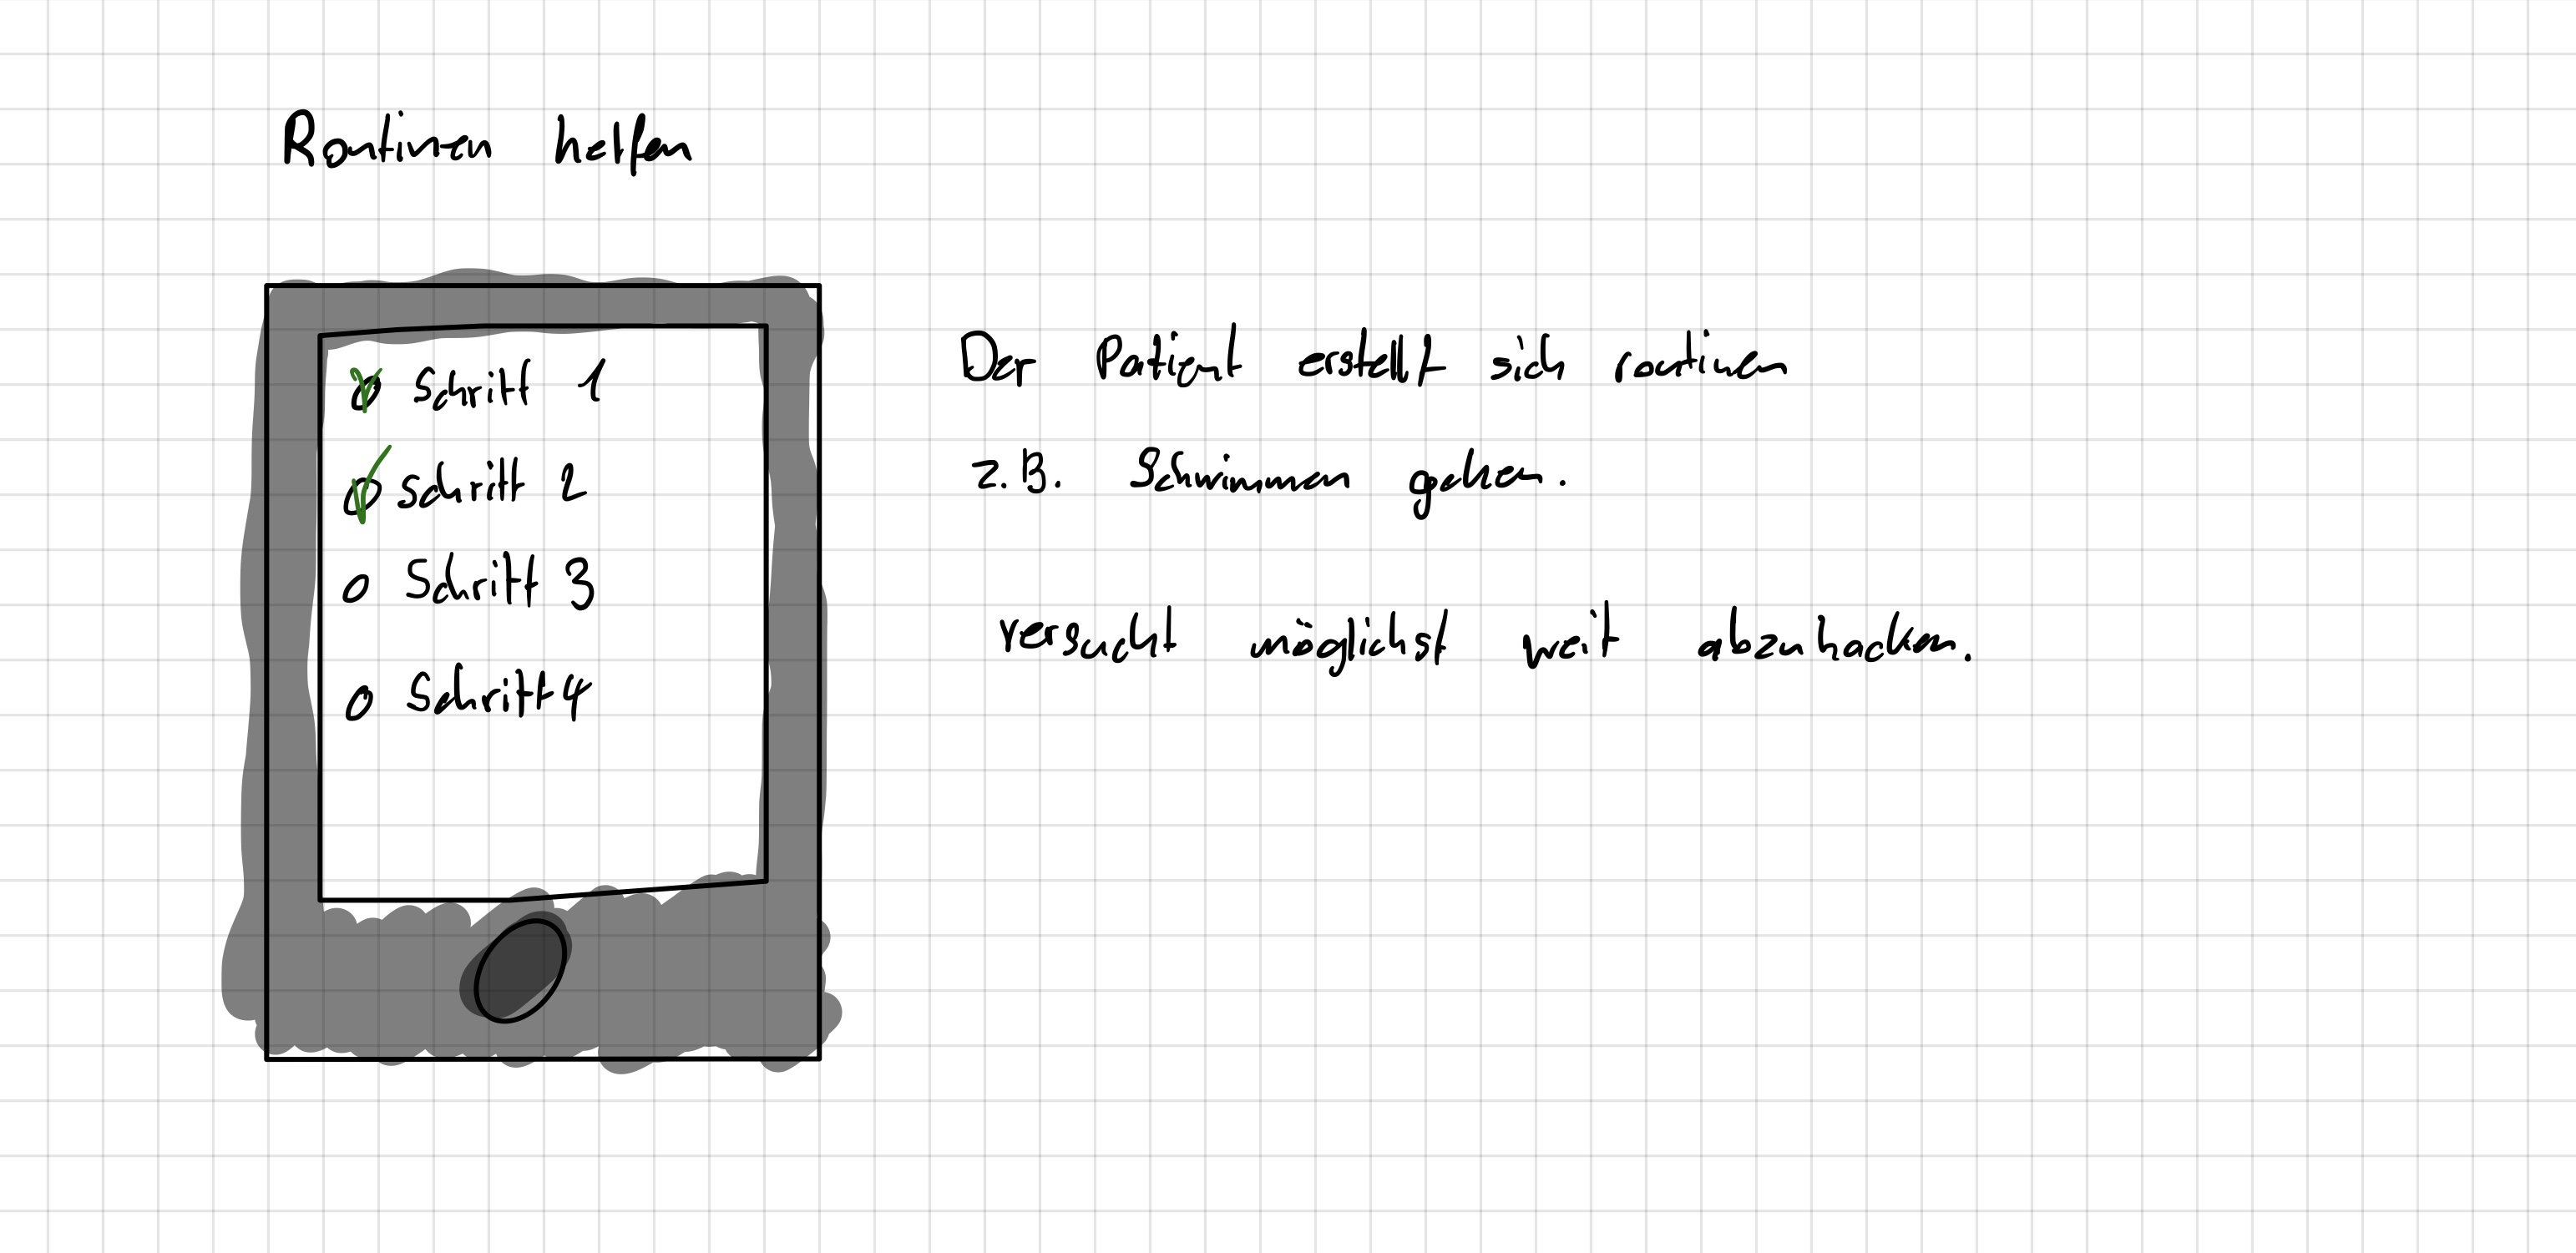 Routinen helfen
Schritt 1
schritt 2
Schritt 3
Schritt 4
Der Patient erstellt sich routinen
z.B. Schwimmen gehen.
versucht möglichst weit abzuhacken.